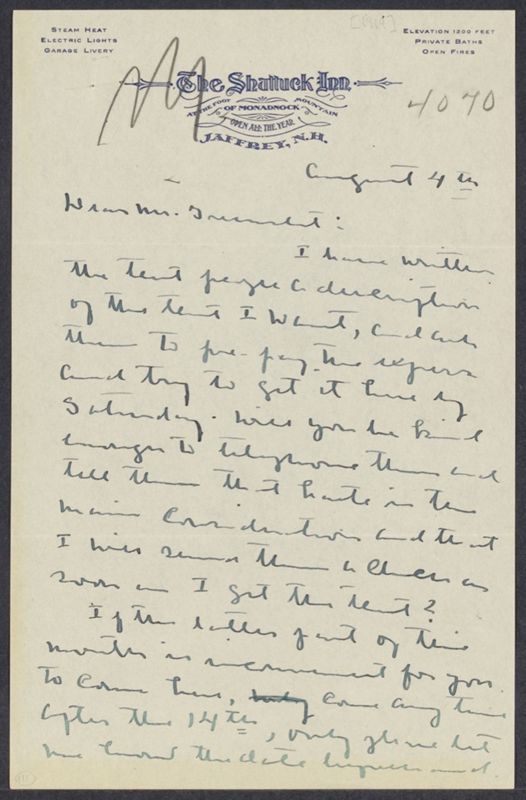 [1917]
STEAM HEAT
ELECTRIC LIGHTS
GARAGE LIVERY
ELEVATION 1200 FEET
PRIVATE BATHS
OPEN FIRES
The Shattuck Inn
AT THE FOOT OF MONADNOCK MOUNTAIN
OPEN ALL THE YEAR
JAFFREY, N.H.
4070
August 4th
Dear Mr. Greenslet:
I have written
the tent people a description
of the tent I want, and ask
them to pre-pay the express
and try to get it here by
Saturday. Will you be kind
enough to telephone them and
tell them that haste is the
main consideration and that
I will send them a check as
soon as I get the tent?
If the latter part of the
month is inconvenient for you
to come here, only come any time
after the 14th, only please let
me know the date beforehand.